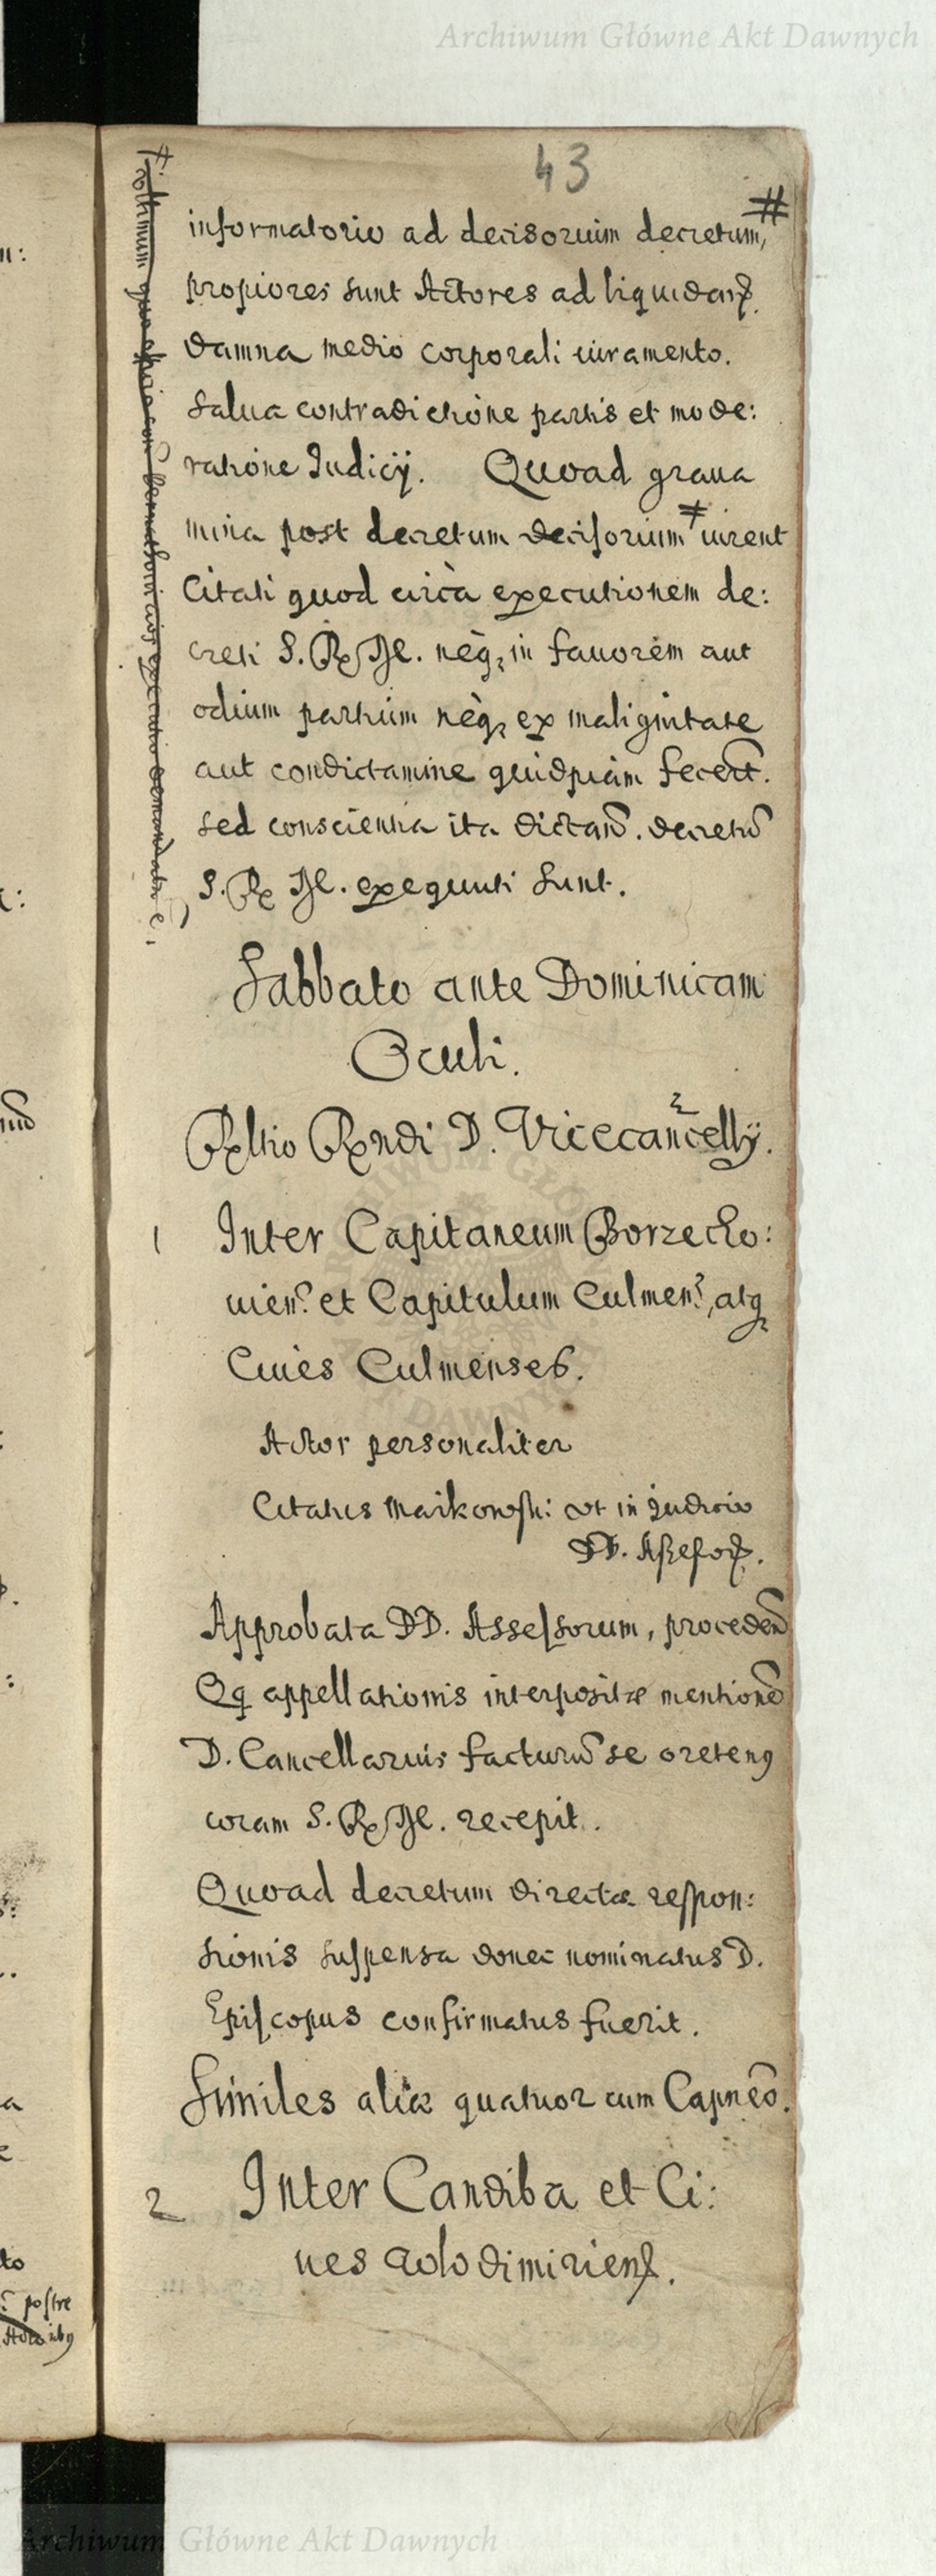 Archiwum Główne Akt Dawnych
43
informatorio ad decisorium decretum, #
propiores sunt Actores ad liquidand
damna medio corporali iuramento.
Salua contradictione partis et mode:
ratione Iudicij. Quoad graua
mina post decretum decisorium ≠ iurent
Citati quod circa executionem de:
creti S. R. M. neq, in fauorem aut
odium partium neq, ex malignitate
aut condictamine quidpiam fecert.
sed conscientia ita dictan. decretu
S. R. M. exequuti sunt.
Sabbato ante Dominicam
Oculi.
Reltio Rendi D. Vicecancellij.
1 Inter Capitaneum Borzecho:
uien. et Capitulum Culmen., atq
Ciues Culmenses.
Actor personaliter
Citatus Maikowsk: vt in Judicio
DD. Assessor.
Approbata DD. Assessorum, proceden
Qq appellationis interpositæ mentione
D. Cancellarius facturu se oreteng
coram S. R. M. recepit.
Quoad decretum directæ respon:
sionis suspensa donec nominatus D.
Episcopus confirmatus fuerit.
Similes aliæ quatuor cum Capneo.
2 Inter Candiba et Ci:
ues Wolodimiriens.
postre
Archiwum Główne Akt Dawnych